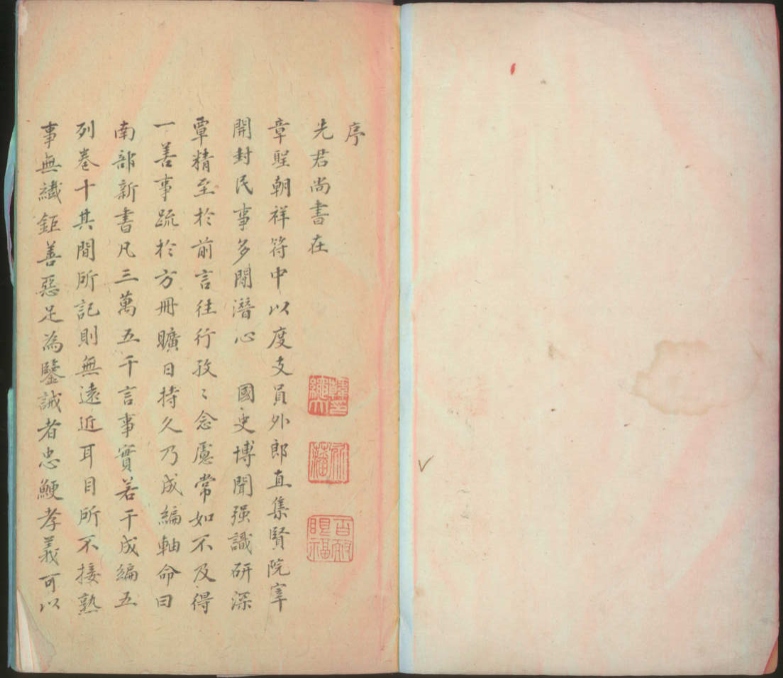 序
先君尚書在
章聖朝祥符中以度支員外郎直集賢院宰
開封民事多閒潛心 國史博聞强識研深
覃精至於前言往行孜〻念慮常如不及得
一善事疏於方冊曠日持久乃成編軸命曰
南部新書凡三萬五千言事實若干成編五
列卷十其間所記則無遠近耳目所不接熟
事無纎鉅善惡足為鑒誡者忠鯁孝義可以